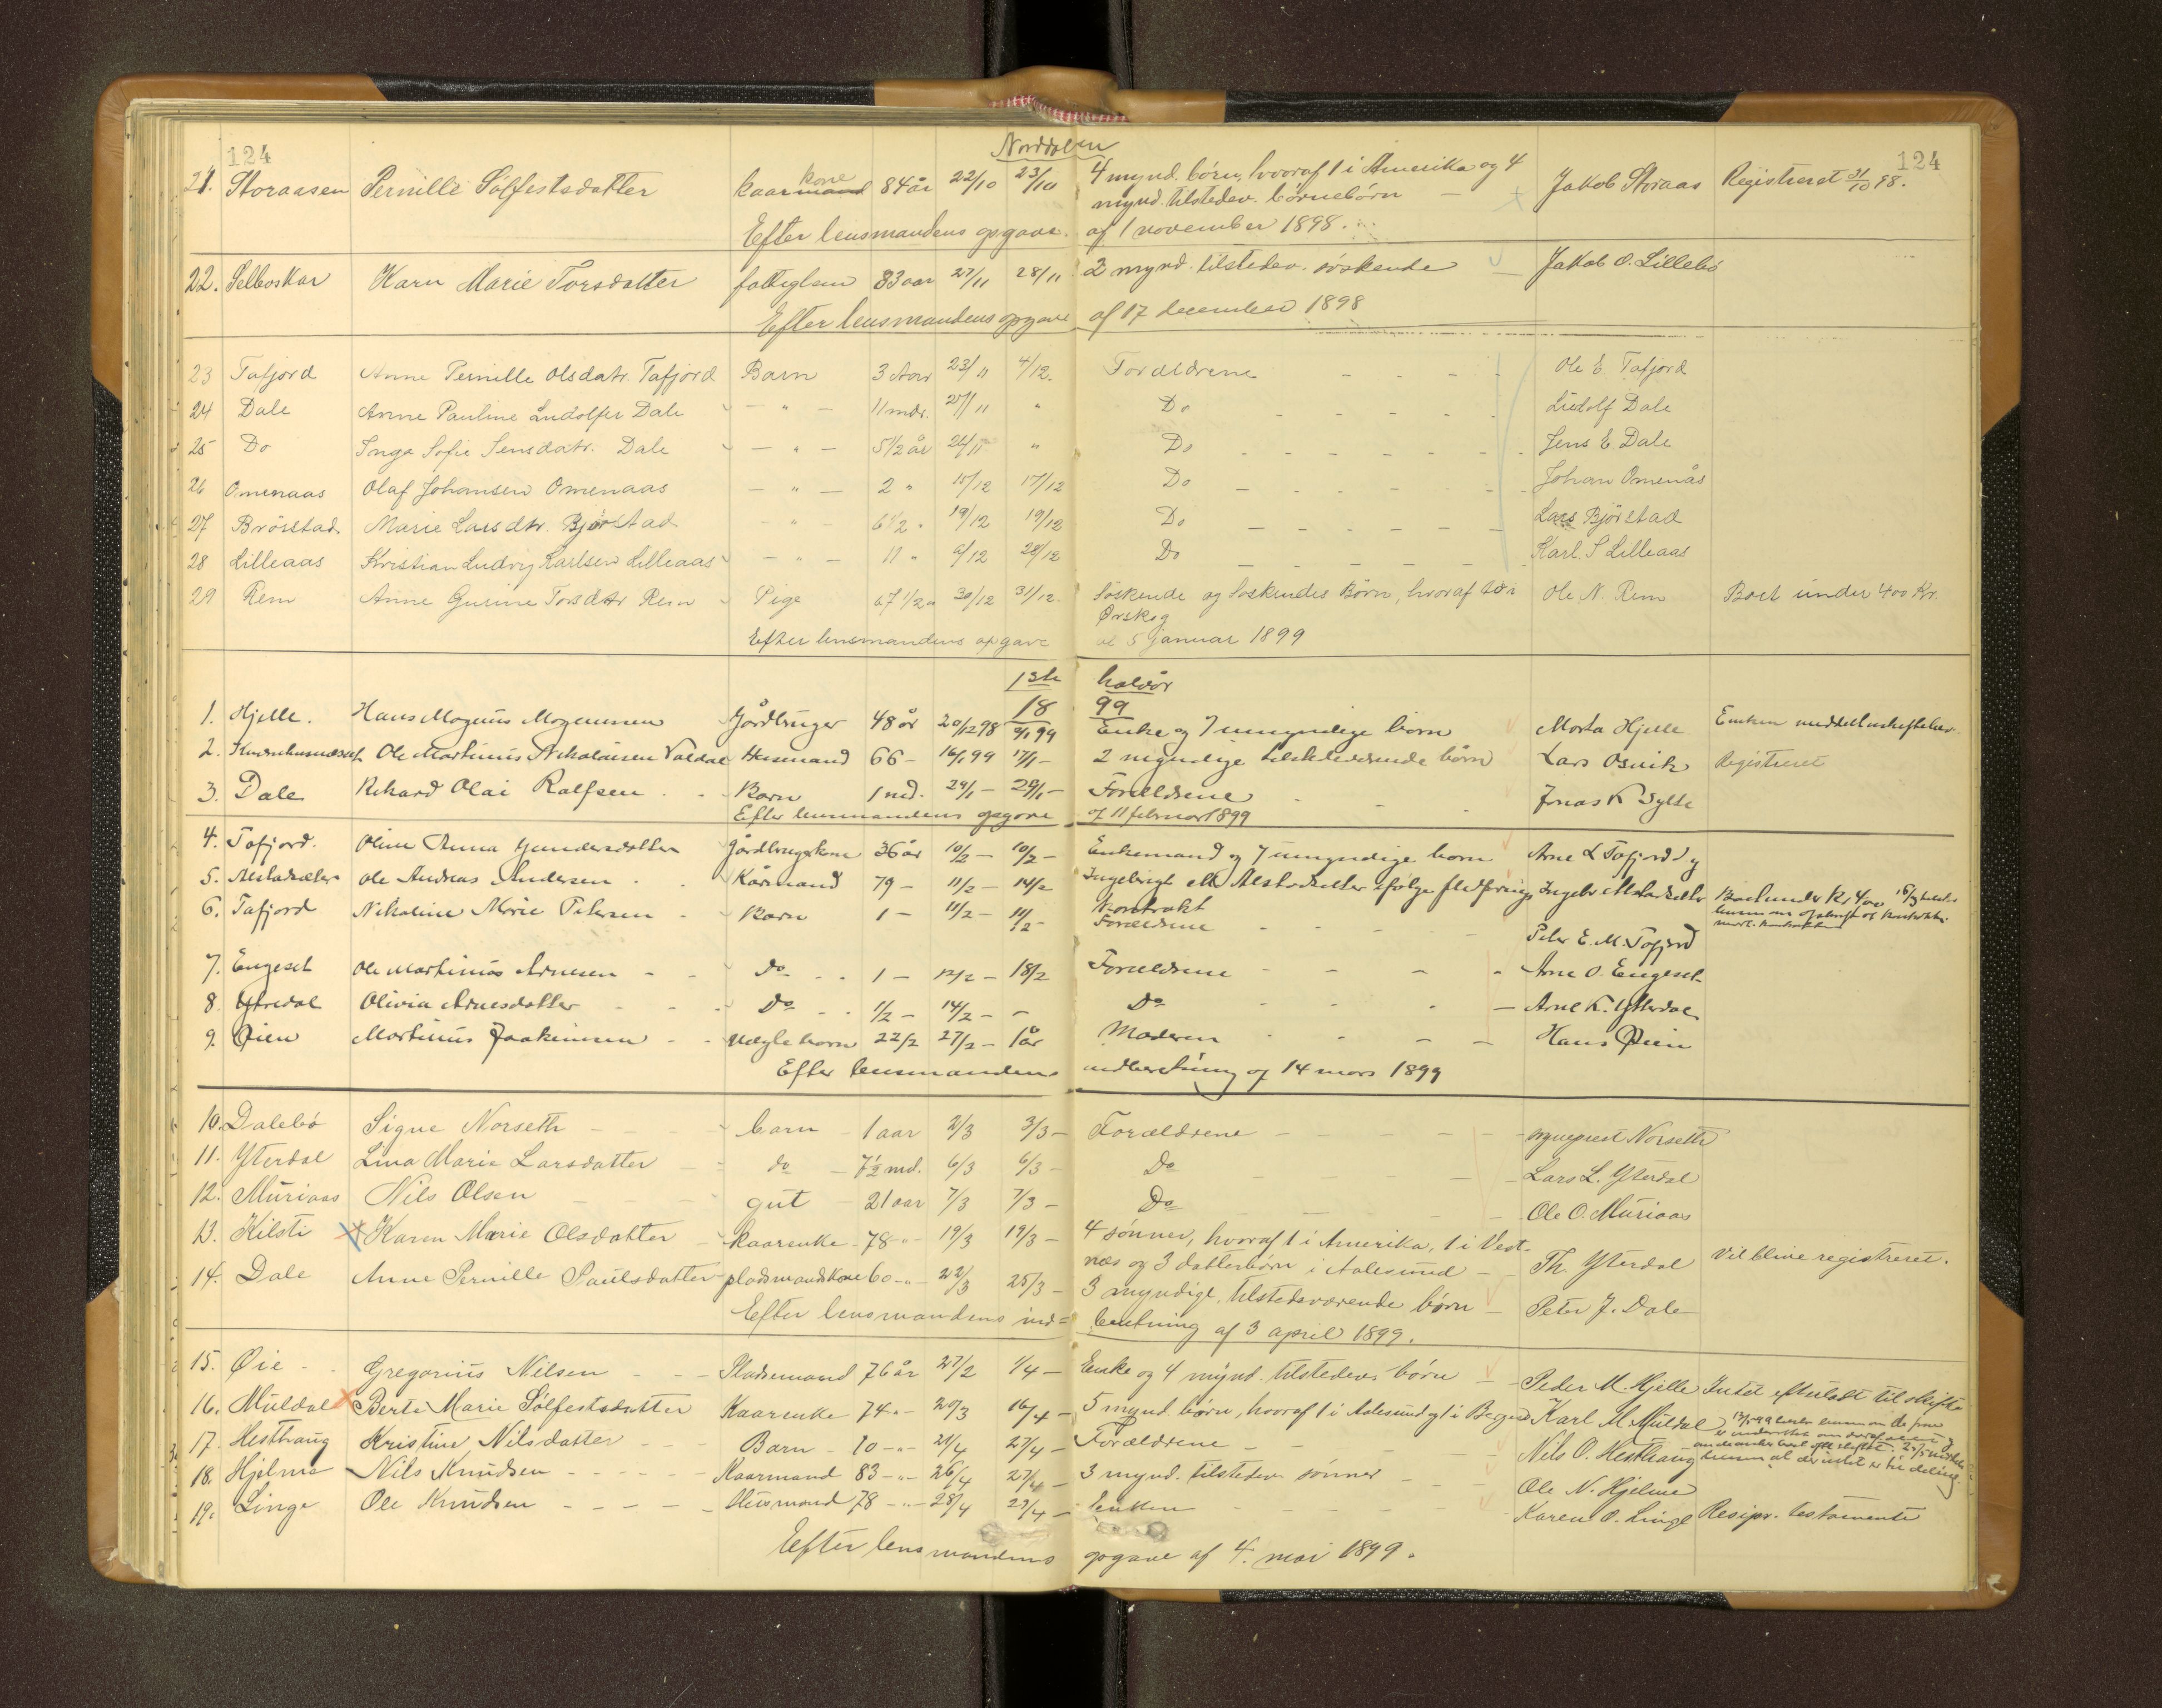 124
Norddalen
124
21. Storaasen Pernille Sølfestsdatter kaarmand kone 84 år 22/10 23/10 4 mynd. børn, hvoraf 1 i Amerika og 4 Jakob Storaas Registreret 31/10 98.
mynd. tilstedev. børnebørn
Efter lensmandens opgave af 1 november 1898.
22. Selboskar Karn Marie Torsdatter fattiglem 83 aar 27/11 28/11 2 mynd. tilstedev. søskende Jakob O. Lillebø
Efter lensmandens opgave af 17 december 1898
23 Tafjord Anne Pernille Olsdatr. Tafjord Barn 3 Aar 23/11 4/12. Forældrene Ole E Tafjord
24 Dale Anne Pauline Ludolfsr Dale — " — 11 mdr. 27/11 " Do Ludolf Dale
25 Do Inga Sofie Jensdatr. Dale — " — 5 1/2 år 24/11 " Do Jens E. Dale
26 Omenaas Olaf Johansen Omenaas — " — 2 " 15/12 17/12 Do Johan Omenås
27 Brörstad Marie Larsdtr. Bjørstad — " — 6 1/2 " 19/12 19/12 Do Lars Bjørstad
28 Lilleaas Kristian Ludvig Karlsen Lilleaas — " — 11 " 6/12 28/12 Do Karl S Lilleaas
29 Rem Anne Gurine Torsdtr Rem Pige 67 1/2 " 30/12 31/12. Søskende og Søskendes Børn, hvoraf Ole N. Rem Boet under 400 Kr.
Ørskog
Efter lensmandens opgave af 5 januar 1899
1ste halvår
18 99
1. Hjelle. Hans Mognus Mogensen Gårdbruger 48 år 20/12 98 2/1 99 Enke og 7 umyndige børn Marta Hjelle Enken meddelt
2. Ole Martinus Nikolaisen Valdal Husmand 66 – 16/1 99 17/1 – 2 myndige tilstedeværende børn Lars Osvik Registreret
3. Dale Rikard Olai Rolfsen Barn 1 md. 24/1 – 29/1 – Forældrene Jonas K Sylte
Efter lensmandens opgave af 11 februar 1899
4. Tafjord. Oline Anna Gundersdatter Gårdbrugerkone 36 år 10/2 – 10/2 – Enkemand og 7 umyndige børn Arne L Tafjord
5. Alstadsæter Ole Andreas Andersen Kårmand 79 – 11/2 – 14/2 Ingebrigt Alstadsæter ifølge fledførings Ingebr Alstadsæter Boet under Kr 400
kontrakt
6. Tafjord Nikoline Marie Petersen Barn 1 – 11/2 – 11/2 – Forældrene Peter E. M. Tafjord
7. Engeset Ole Martinus Arnesen Do 1 – 12/2 – 18/2 Forældrene Arne O. Engeset
8. Ytredal Olivia Arnesdatter Do 1/2 – 14/2 – – Do Arne K. Ytterdal
9. Øien Martinus Joakimsen Uægte barn 22/2 27/2 – 1 år Moderen Hans Øien
Efter lensmandens indberetning af 14 mars 1899
10. Dalebø Signe Norseth barn 1 aar 2/3 3/3 – Forældrene sogneprest Norseth
11. Yterdal Lina Marie Larsdatter do 7 1/2 md. 6/3 6/3 – Do Lars L. Yterdal
12. Muriaas Nils Olsen gut 21 aar 7/3 7/3 – Do Ole O. Muriaas
13. Kilsti Karen Marie Olsdatter kaarenke 78 " 19/3 19/3 – 4 sønner, hvoraf 1 i Amerika, 1 i Vest-
næs og 3 datterbørn i Aalesund Th. Yterdal Vil blive registreret.
14. Dale Anne Pernille Paulsdatter pladsmandskone 60 –"– 22/3 25/3 – 3 myndige, tilstedeværende børn Peter J. Dale
Efter lensmandens indberetning af 3 april 1899.
15. Øie Gregorius Nilsen Pladsemand 76 år 27/2 1/4 – Enke og 4 mynd. tilstedev. børn Peder M. Hjelle Intet efterladt til skifte
16. Muldal Berte Marie Sølfestsdatter Kaarenke 74 " 29/3 16/4 – 5 mynd. børn, hvoraf 1 i Aalesund og 1 i Karl M. Muldal
17. Hesthaug Kristine Nilsdatter Barn 10 –"– 21/4 27/4 – Forældrene Nils O. Hesthaug
18. Hjelme Nils Knudsen Kaarmand 83 –"– 26/4 27/4 – 3 mynd. tilstedev. sønner Ole N. Hjelme
19. Linge Ole Knudsen Husmand 78 –"– 28/4 29/4 – Enken Karen O. Linge Resipr. testamente
Efter lensmandens opgave af 4. mai 1899.